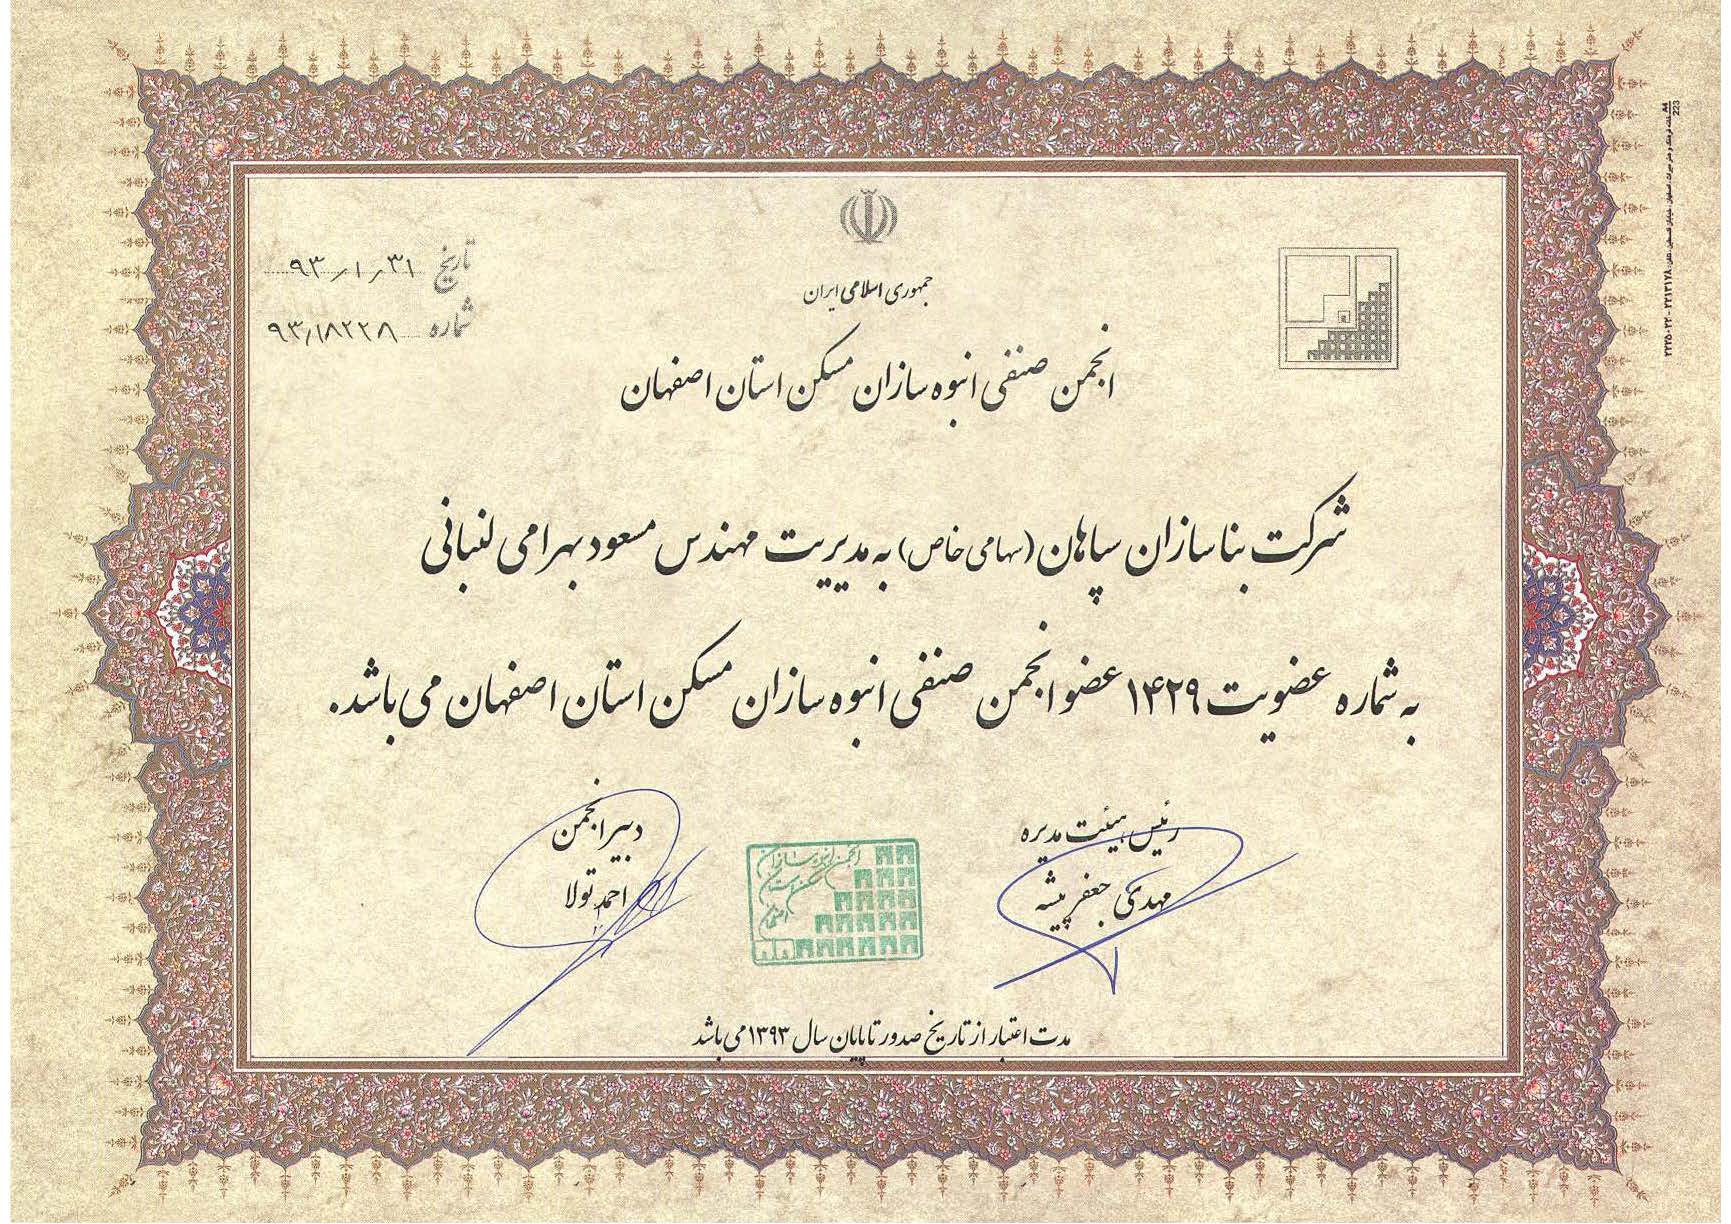 جمهوری اسلامی ایران
تاریخ ۹۳/۱/۳۱
شماره ۹۳/۱۸۲۲۸
انجمن صنفی انبوه سازان مسکن استان اصفهان
شرکت بنا سازان سپاهان (سهامی خاص) به مدیریت مهندس مسعود بهرامی لنبانی
به شماره عضویت ۱۴۲۹ عضو انجمن صنفی انبوه سازان مسکن استان اصفهان می باشد.
رئیس هیئت مدیره
مهدی جعفر پیشه
دبیر انجمن
احمد تولا
انجمن انبوه سازان
مسکن استان
اصفهان
مدت اعتبار از تاریخ صدور تا پایان سال ۱۳۹۳ می باشد
223